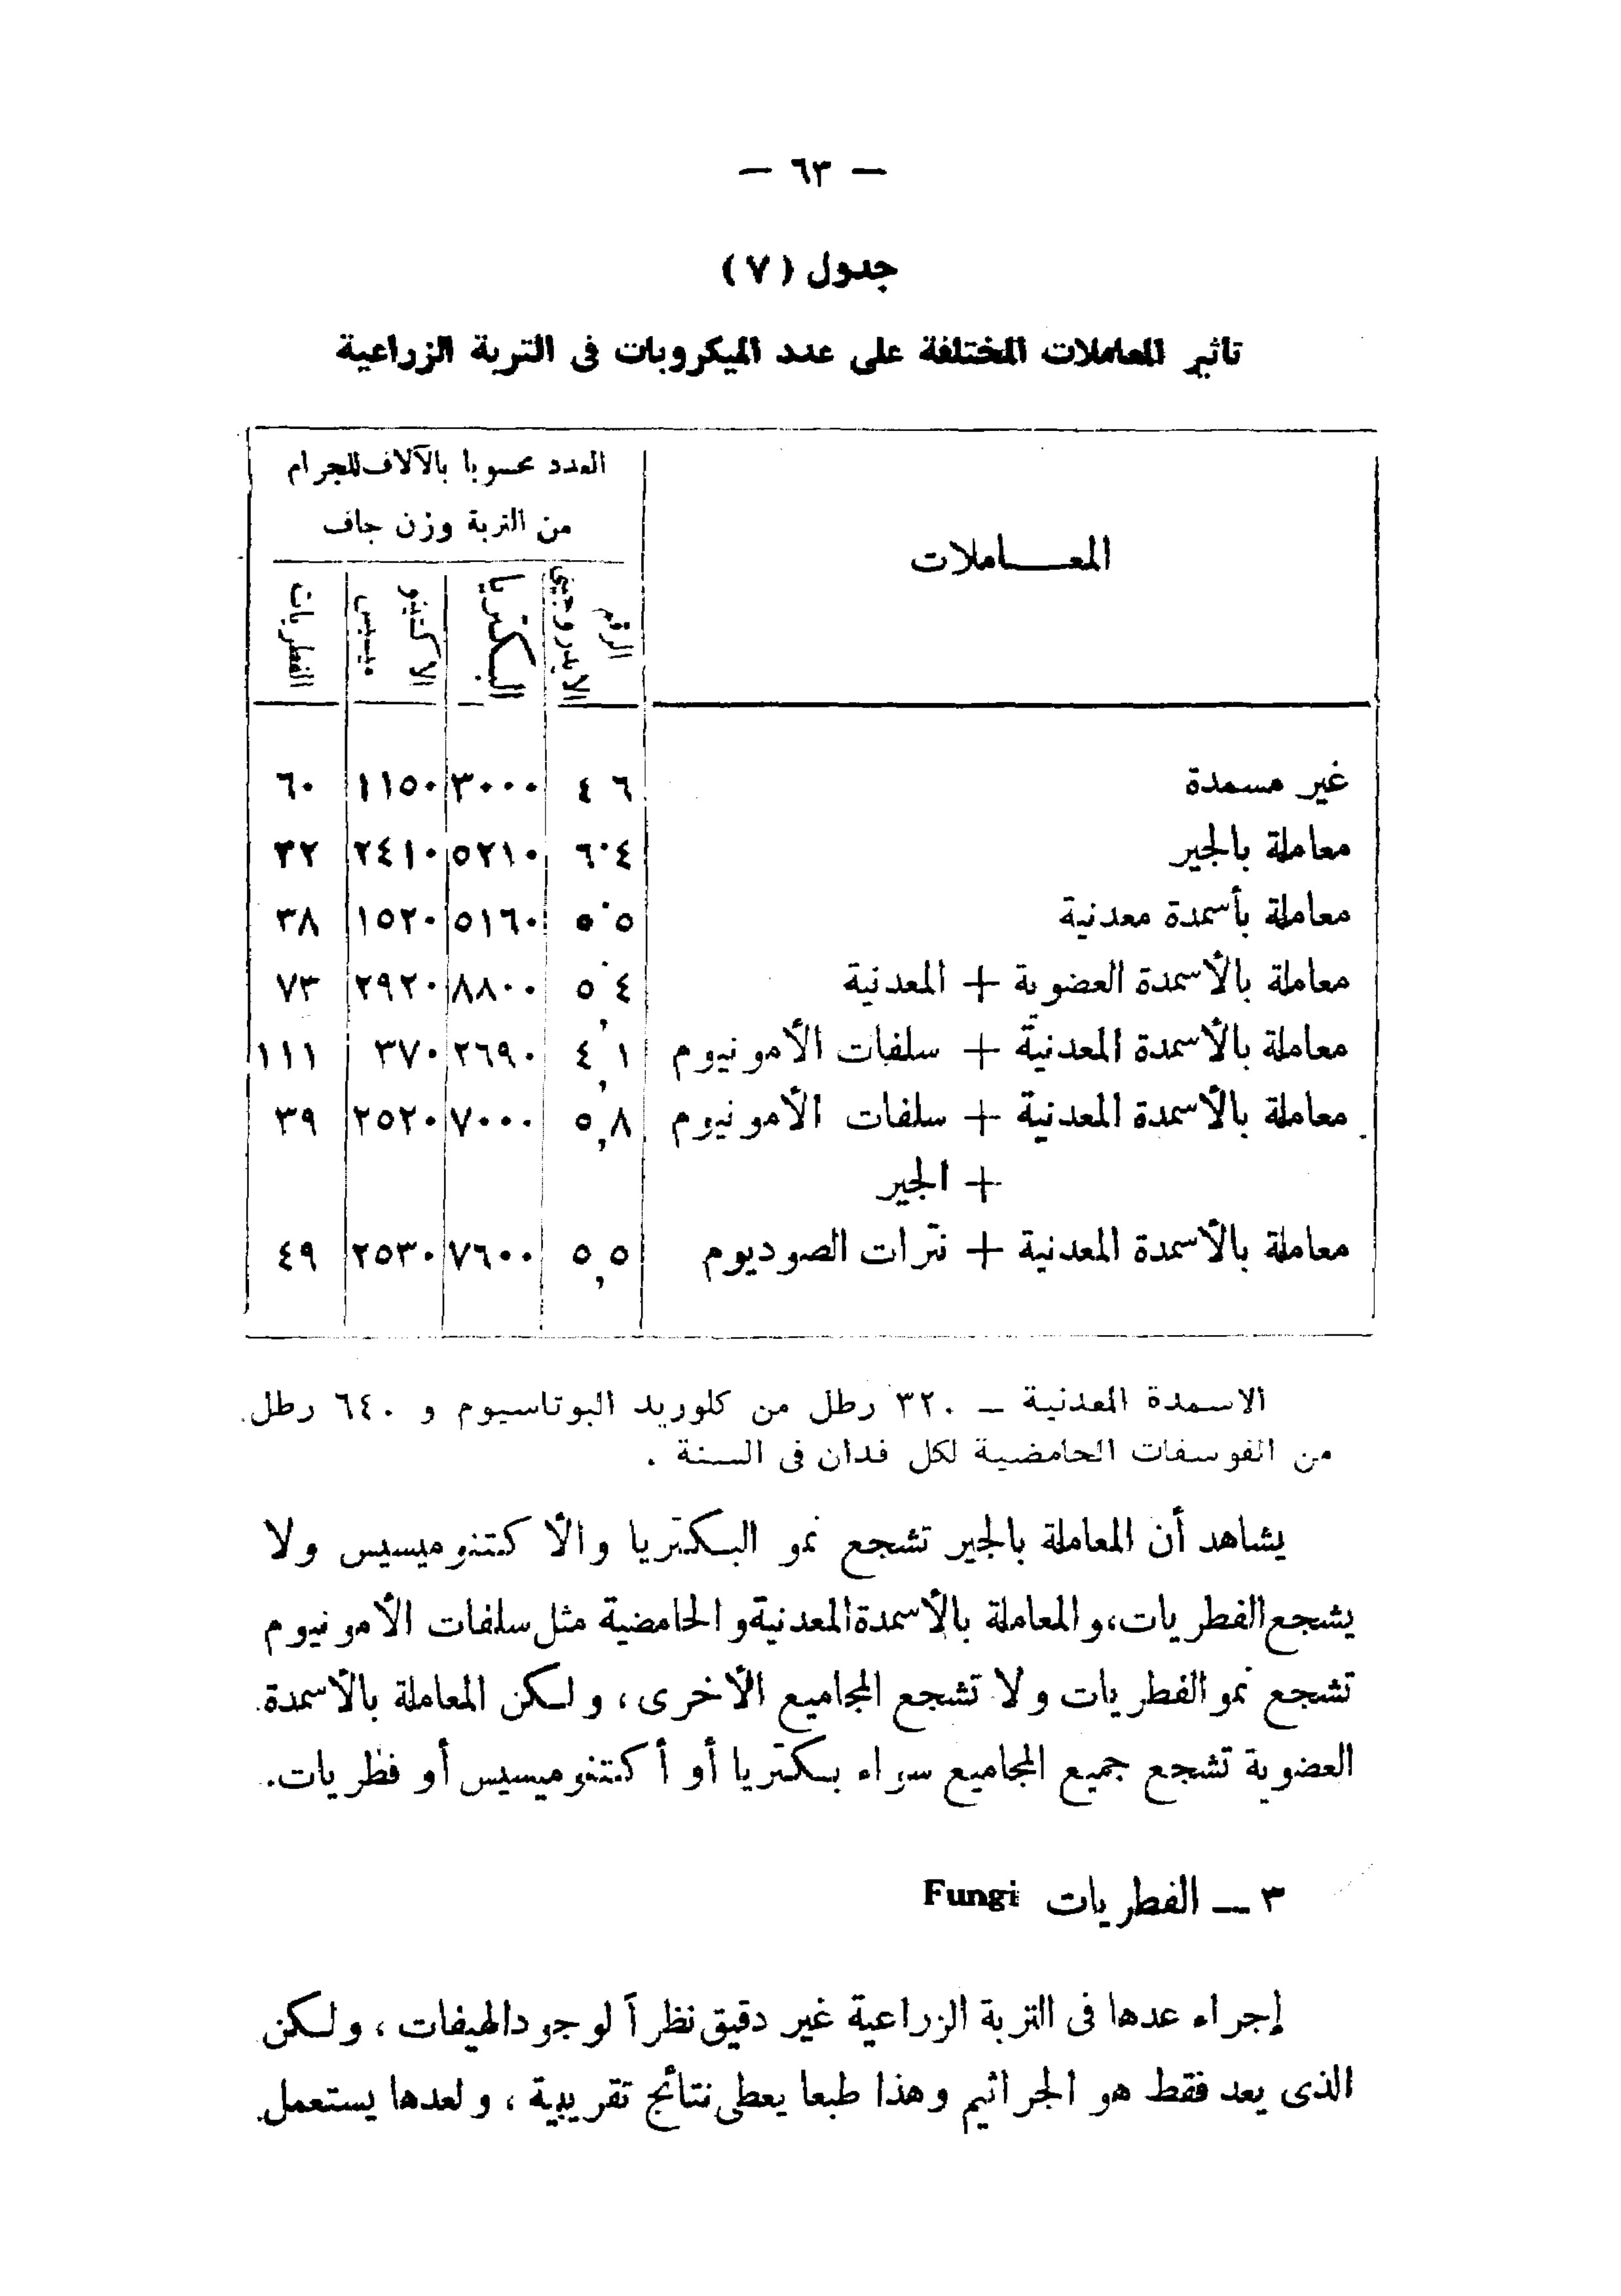 — ٦٣ —
جدول (٧)
تاثير المعاملات المختلفة على عدد الميكروبات فى التربة الزراعية
المعـــاملات
العدد محسوبا بالآلاف للجرام
من التربة وزن جاف
الرقم الايدروجيني
البكتريا
الاكتينو ميسيس
الفطريات
غير مسمدة ٤ ٦ ٣٠٠٠ ١١٥٠ ٦٠
معاملة بالجير ٦٠٤ ٥٢١٠ ٢٤١٠ ٣٢
معاملة بأسمدة معدنية ٥٠٥ ٥١٦٠ ١٥٢٠ ٣٨
معاملة بالأسمدة العضوية + المعدنية ٥٠٤ ٨٨٠٠ ٢٩٢٠ ٧٣
معاملة بالأسمدة المعدنية + سلفات الأمونيوم ٤,١ ٢٦٩٠ ٣٧٠ ١١١
معاملة بالأسمدة المعدنية + سلفات الأمونيوم ٥,٨ ٧٠٠٠ ٢٥٢٠ ٣٩
+ الجير
معاملة بالأسمدة المعدنية + نترات الصوديوم ٥,٥ ٧٦٠٠ ٢٥٣٠ ٤٩
الاسمدة المعدنية — ٣٢٠ رطل من كلوريد البوتاسيوم و ٦٤٠ رطل
من الفوسفات الحامضية لكل فدان فى السنة .
يشاهد أن المعاملة بالجير تشجع نمو البكتريا والأكتنوميسيس ولا
يشجع الفطريات، والمعاملة بالأسمدة المعدنية والحامضية مثل سلفات الأمونيوم
تشجع نمو الفطريات ولا تشجع المجاميع الأخرى، ولكن المعاملة بالأسمدة
العضوية تشجع جميع المجاميع سواء بكتريا أو أكتنوميسيس أو فطريات.
٣ — الفطريات Fungi
إجراء عدها فى التربة الزراعية غير دقيق نظراً لوجود الهيفات ، ولكن
الذى يعد فقط هو الجراثيم وهذا طبعا يعطى نتائج تقريبية ، ولعدها يستعمل